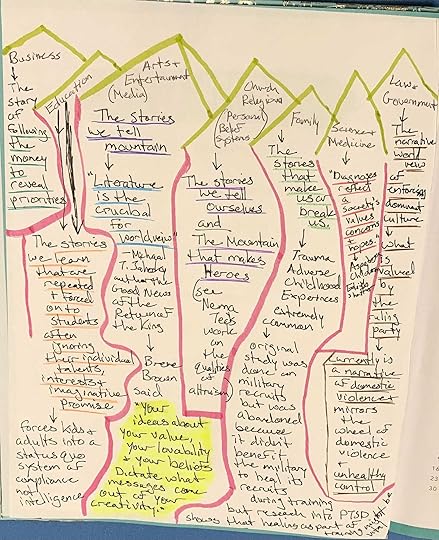 Business
↓
The
story
of
following
the
money
to
reveal
priorities
Education
The stories
we learn
that are
repeated
+ forced
on to
students
often
ignoring
their individual
talents,
interests +
imaginative
promise
↓
Forces kids +
adults into a
status quo
system of
compliance
not
intelligence
Arts +
Entertainment
(Media)
The Stories
we tell
mountain
↓
"Literature
is the
crucible
for
worldview"
author the
Good News
of the
Return of
the King
↓
Brene
Brown
said
"Your
ideas about
your value,
your lovability
+ your beliefs
Dictate what
messages come
out of your
creativity."
Church
Religious
(Personal
Belief
Systems)
↓
The stories
we tell
Ourselves
and
The Mountain
that makes
Heroes
(see
Nema
work
on
the
qualities
of
altruism)
Family
↓
The
stories
that
make
us or
break
us.
↓
Trauma
Adverse
Childhood
Experiences
extremely
common!
↓
original
study was
done on
military
recruits
but was
abandoned
because
it didn't
benefit
the military
to heal its
recruits
during training
but research into PTSD
shows that healing as part of
training
might be
Science +
Medicine
↓
"Diagnoses
reflect
a
society's
values
concerns
+
hopes"
Law +
Government
↓
The
narrative
world
view
of
enforcing
dominant
culture
↓
what
is
valued
by
the
ruling
party
↓
Currently is
a narrative
of domestic
violence +
mirrors
the
wheel of
domestic
violence
↓
unhealthy
control